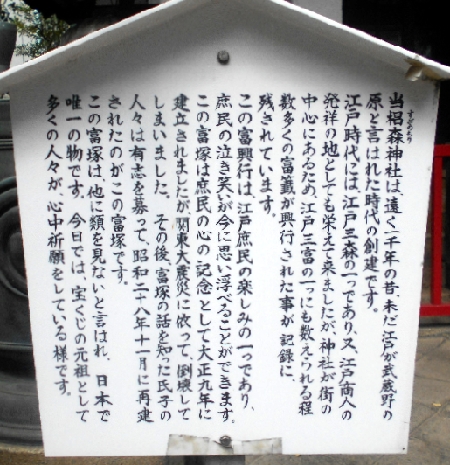 すぎのもり
当椙森神社は、遠く一千年の昔、未だ江戸が武蔵野の
原と言はれた時代の創建です。
江戸時代には、江戸三森の一つであり、又、江戸商人の
発祥の地としても栄えて来ましたが、神社が街の
中心にあるため、江戸三富の一つにも数えられる程
数多くの富籤が興行された事が記録に、
残されています。
この富興行は江戸庶民の楽しみの一つであり、
庶民の泣き笑いが今に思い浮べることができます。
この富塚は庶民の心の記念として大正九年に
建立されましたが関東大震災に依って、倒壊して
しまいました。その後、富塚の話を知った氏子の
人々は有志を募って、昭和二十八年十一月に再建
されたのがこの富塚です。
この富塚は、他に類を見ないと言はれ、日本で
唯一の物です。今日では、宝くじの元祖として
多くの人々が、心中祈願をしている様です。